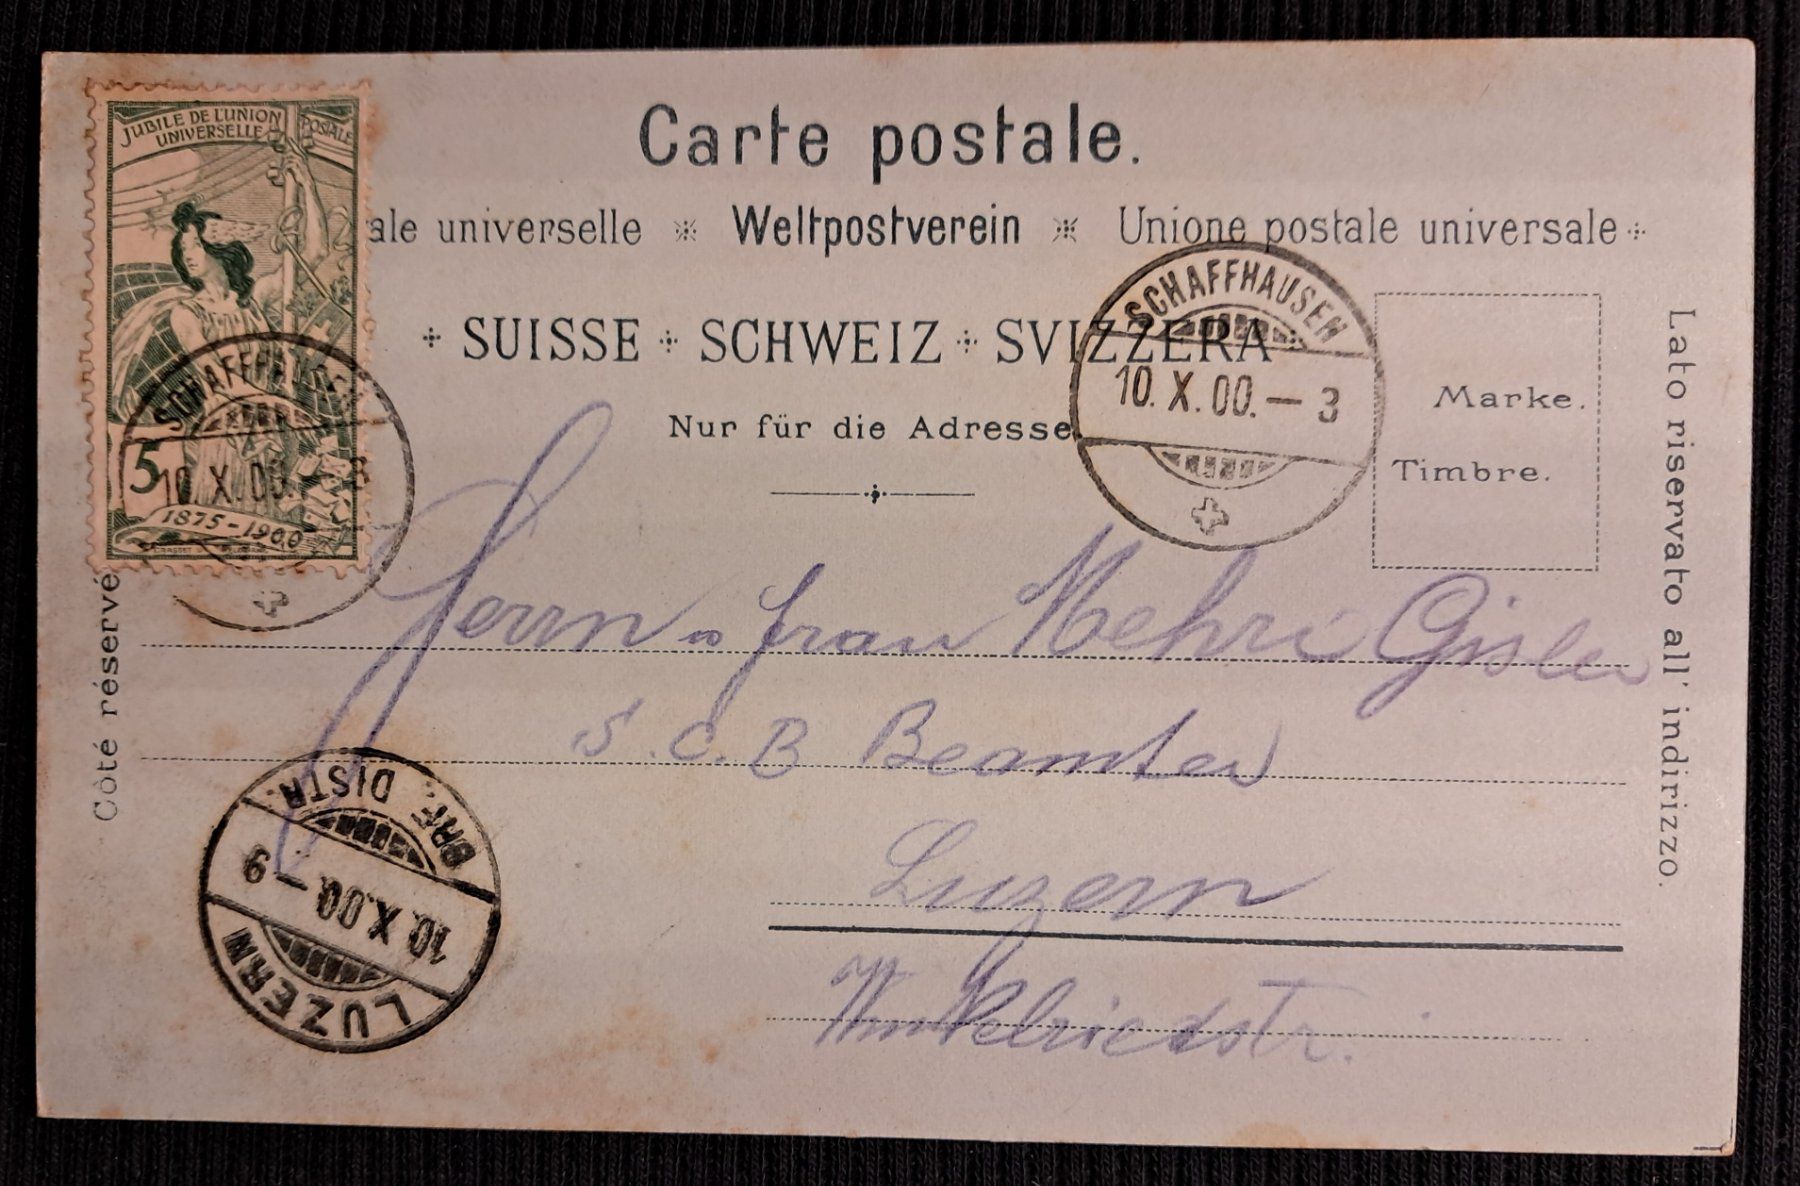 Carte postale.
ale universelle Weltpostverein Unione postale universale
SUISSE SCHWEIZ SVIZZERA
Nur für die Adresse.
JUBILE DE L'UNION
POSTALE
UNIVERSELLE
5
1875-1900
SCHAFFHAUSEN
10.X.00. 3
SCHAFFHAUSEN
10.X.00.— 3
Marke.
Timbre.
Côté réservé
Lato riservato all' indirizzo.
Herrn u Frau Gisler
S.C.B Beamter
Luzern
Winkelriedstr.
LUZERN
10.X.00.— 9
BRF. DISTR.